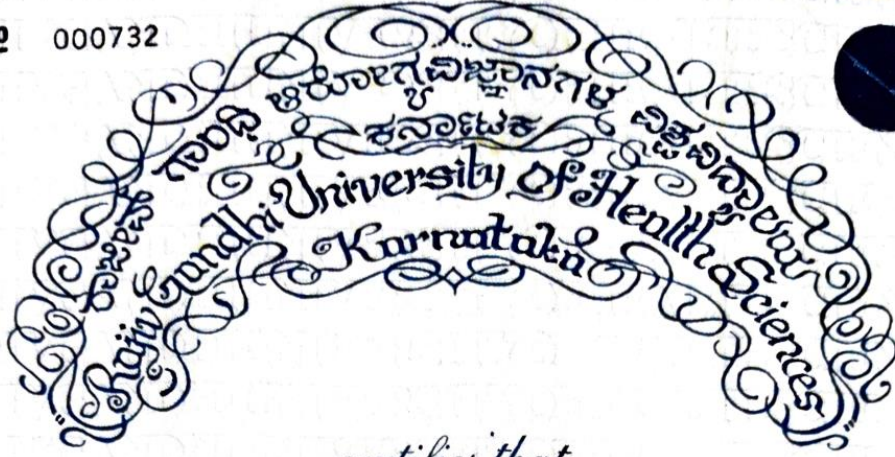 000732
ರಾಜೀವ್ ಗಾಂಧಿ ಆರೋಗ್ಯ ವಿಜ್ಞಾನಗಳ ವಿಶ್ವವಿದ್ಯಾಲಯ
ಕರ್ನಾಟಕ
Rajiv Gandhi University Of Health Sciences
Karnataka
that